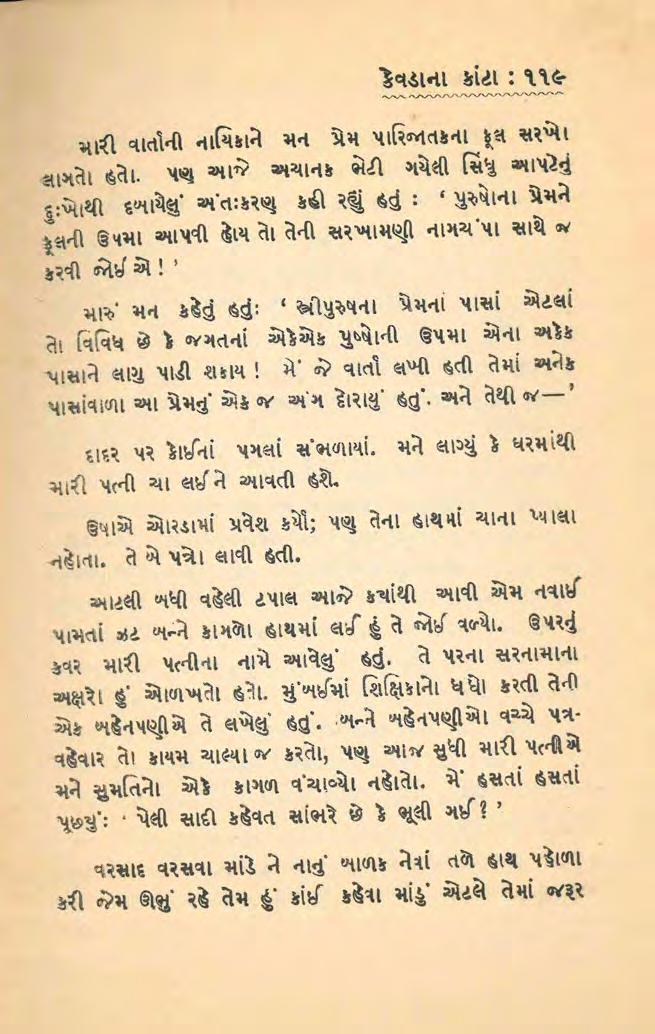 કેવડાના કાંટા : ૧૧૯
મારી વાર્તાની નાયિકાને મન પ્રેમ પારિજાતકના ફૂલ સરખો
લાગતો હતો. પણ આજે અચાનક ભેટી ગયેલી સિંધુ આપટેનું
દુઃખોથી દબાયેલું અંતઃકરણ કહી રહ્યું હતું : ‘ પુરુષોના પ્રેમને
ફૂલની ઉપમા આપવી હોય તો તેની સરખામણી નાગચંપા સાથે જ
કરવી જોઈએ ! ’
મારું મન કહેતું હતુંઃ ‘ સ્ત્રીપુરુષના પ્રેમનાં પાસાં એટલાં
તો વિવિધ છે કે જગતનાં એકેએક પુષ્પોની ઉપમા એના અકેક
પાસાને લાગુ પાડી શકાય ! મેં જે વાર્તા લખી હતી તેમાં અનેક
પાસાંવાળા આ પ્રેમનું એક જ અંગ દોરાયું હતું. અને તેથી જ—’
દાદર પર કોઈનાં પગલાં સંભળાયાં. મને લાગ્યું કે ઘરમાંથી
મારી પત્ની ચા લઈને આવતી હશે.
ઉષાએ ઓરડામાં પ્રવેશ કર્યો; પણ તેના હાથમાં ચાના પ્યાલા
નહોતા. તે બે પત્રો લાવી હતી.
આટલી બધી વહેલી ટપાલ આજે કયાંથી આવી એમ નવાઈ
પામતાં ઝટ બન્ને કાગળો હાથમાં લઈ હું તે જોઈ વળ્યો. ઉપરનું
કવર મારી પત્નીના નામે આવેલું હતું. તે પરના સરનામાના
અક્ષરો હું ઓળખતો હતો. મુંબઈમાં શિક્ષિકાનો ધંધો કરતી તેની
એક બહેનપણીએ તે લખેલું હતું. બન્ને બહેનપણીઓ વચ્ચે પત્ર-
વહેવાર તો કાયમ ચાલ્યા જ કરતો, પણ આજ સુધી મારી પત્નીએ
મને સુમતિનો એકે કાગળ વંચાવ્યો નહોતો. મેં હસતાં હસતાં
પૂછયુંઃ ‘ પેલી સાદી કહેવત સાંભરે છે કે ભૂલી ગઈ ? ’
વરસાદ વરસવા માંડે ને નાનું બાળક નેવાં તળે હાથ પહોળા
કરી જેમ ઊભું રહે તેમ હું કાંઈ કહેવા માંડું એટલે તેમાં જરૂર